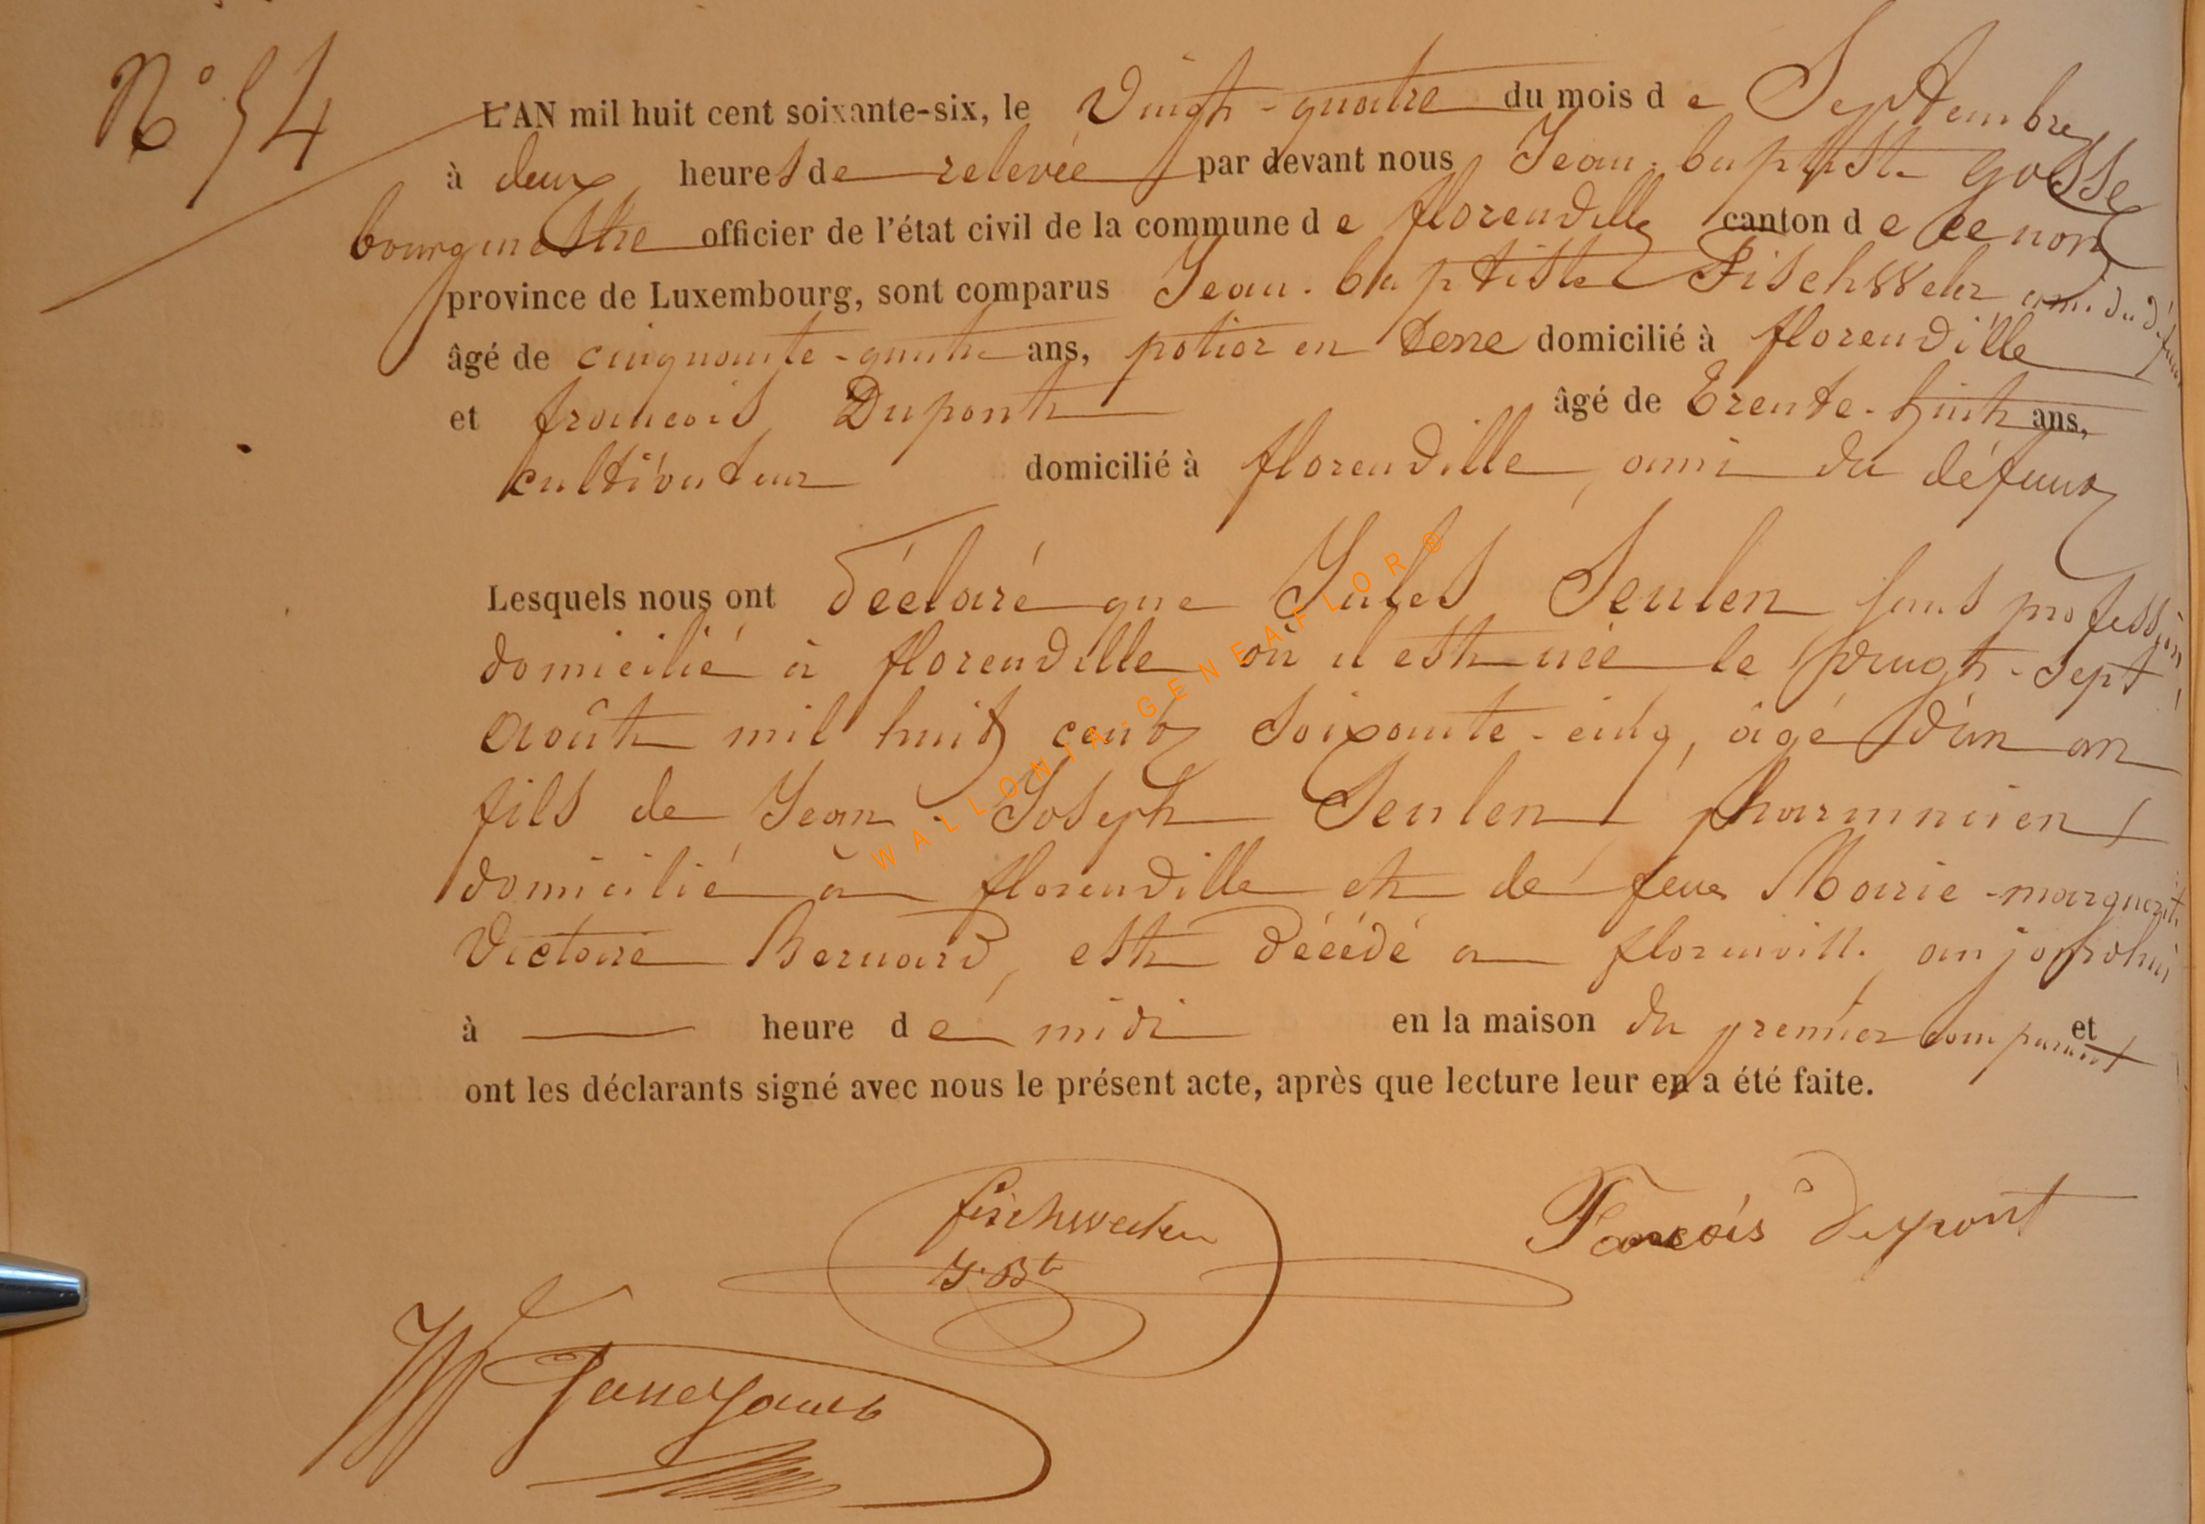 N° 54
L'AN mil huit cent soixante-six, le Vingt-quatre du mois de Septembre
à deux heures de relevée par devant nous Jean-baptiste gosse
bourgmestre officier de l'état civil de la commune de florenville canton de ce nom
province de Luxembourg, sont comparus Jean-baptiste Fischweler ami du défunt
âgé de cinquante-quatre ans, potier en terre domicilié à florenville
et francois Dupont âgé de trente-huit ans,
cultivateur domicilié à florenville, ami du défunt
Lesquels nous ont déclaré que Jules Seulen sans profession,
domicilié à florenville où il est née le vingt-sept
août mil huit cent soixante-cinq, âgé d'un an
fils de Jean-Joseph Seulen, pharmacien
domicilié à florenville et de feue Marie-marguerite
Victoire Bernard, est décédé a florenville aujourdhui
à — heure de midi en la maison du premier comparant et
ont les déclarants signé avec nous le présent acte, après que lecture leur en a été faite.
fischweler
J. Bte
Francois dupont
WALLONIA-GENEAFLOR®